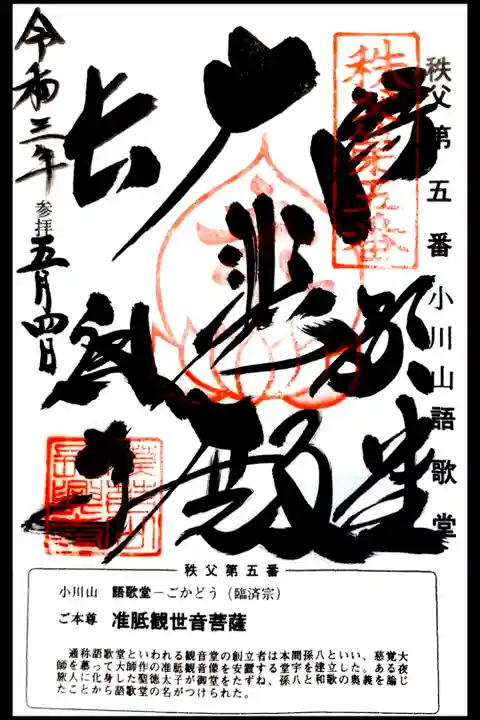 秩父第五番 小川山語歌堂
秩父第五番
語歌堂
大悲殿
長興寺
令和三年 参拝 五月四日
秩父第五番
小川山 語歌堂－ごかどう（臨済宗）
ご本尊 准胝観世音菩薩
通称語歌堂といわれる観音堂の創立者は本間孫八といい、慈覚大
師を慕って大師作の准胝観音像を安置する堂宇を建立した。ある夜
旅人に化身した聖徳太子が御堂をたずね、孫八と和歌の奥義を論じ
たことから語歌堂の名がつけられた。